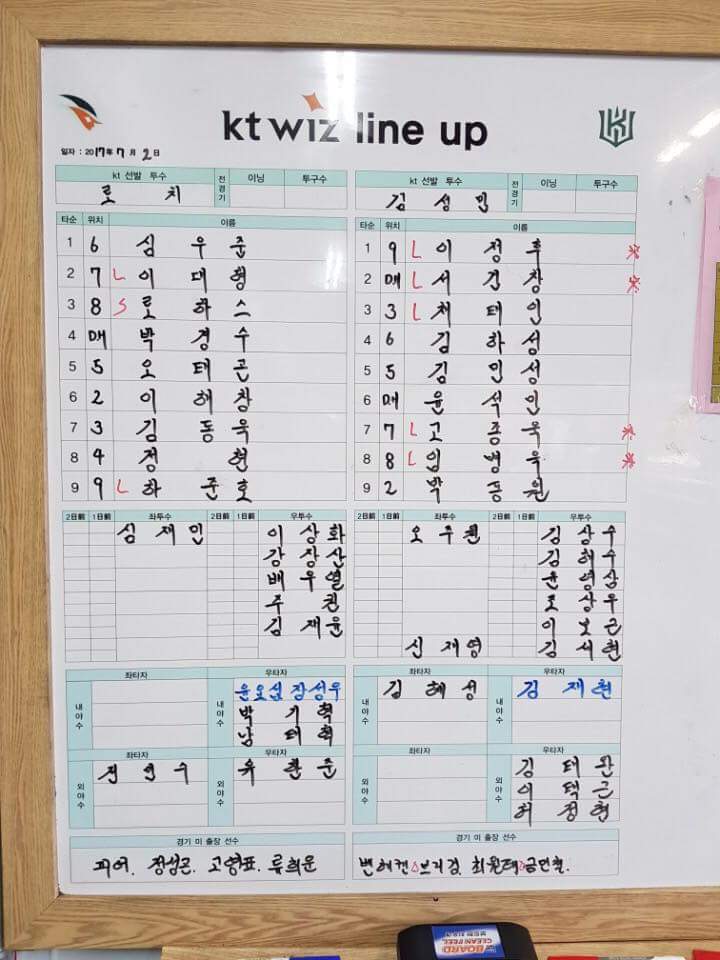 kt wiz line up
일자 : 2017年 7月 2日
kt 선발 투수 전경기 이닝 투구수
로치
타순 위치 이름
1 6 심우준
2 7 L 이대형
3 8 S 로하스
4 DH 박경수
5 5 오태곤
6 2 이해창
7 3 김동욱
8 4 정현
9 9 L 하준호
2日前 1日前 좌투수 2日前 1日前 우투수
심재민 이상화
강장산
배우열
주권
김재윤
좌타자 우타자
내야수 내야수 윤요섭 장성우
박기혁
남태혁
좌타자 우타자
외야수 전민수 외야수 유한준
경기 미 출장 선수
피어. 정성곤. 고영표. 류희운
kt 선발 투수 전경기 이닝 투구수
김성민
타순 위치 이름
1 9 L 이정후 ※
2 DH L 서건창 ※
3 3 L 채태인
4 6 김하성
5 5 김민성
6 DH 윤석민
7 7 L 고종욱 ※
8 8 L 임병욱 ※
9 2 박동원
2日前 1日前 좌투수 2日前 1日前 우투수
오주원 김상수
김해수
윤영삼
조상우
이보근
신재영 김세현
좌타자 우타자
내야수 김혜성 내야수 김재현
좌타자 우타자
외야수 외야수 김태완
이택근
허정협
경기 미 출장 선수
밴헤켄 브리검. 최원태 금민철.
BOARD
CLEAN FEEL